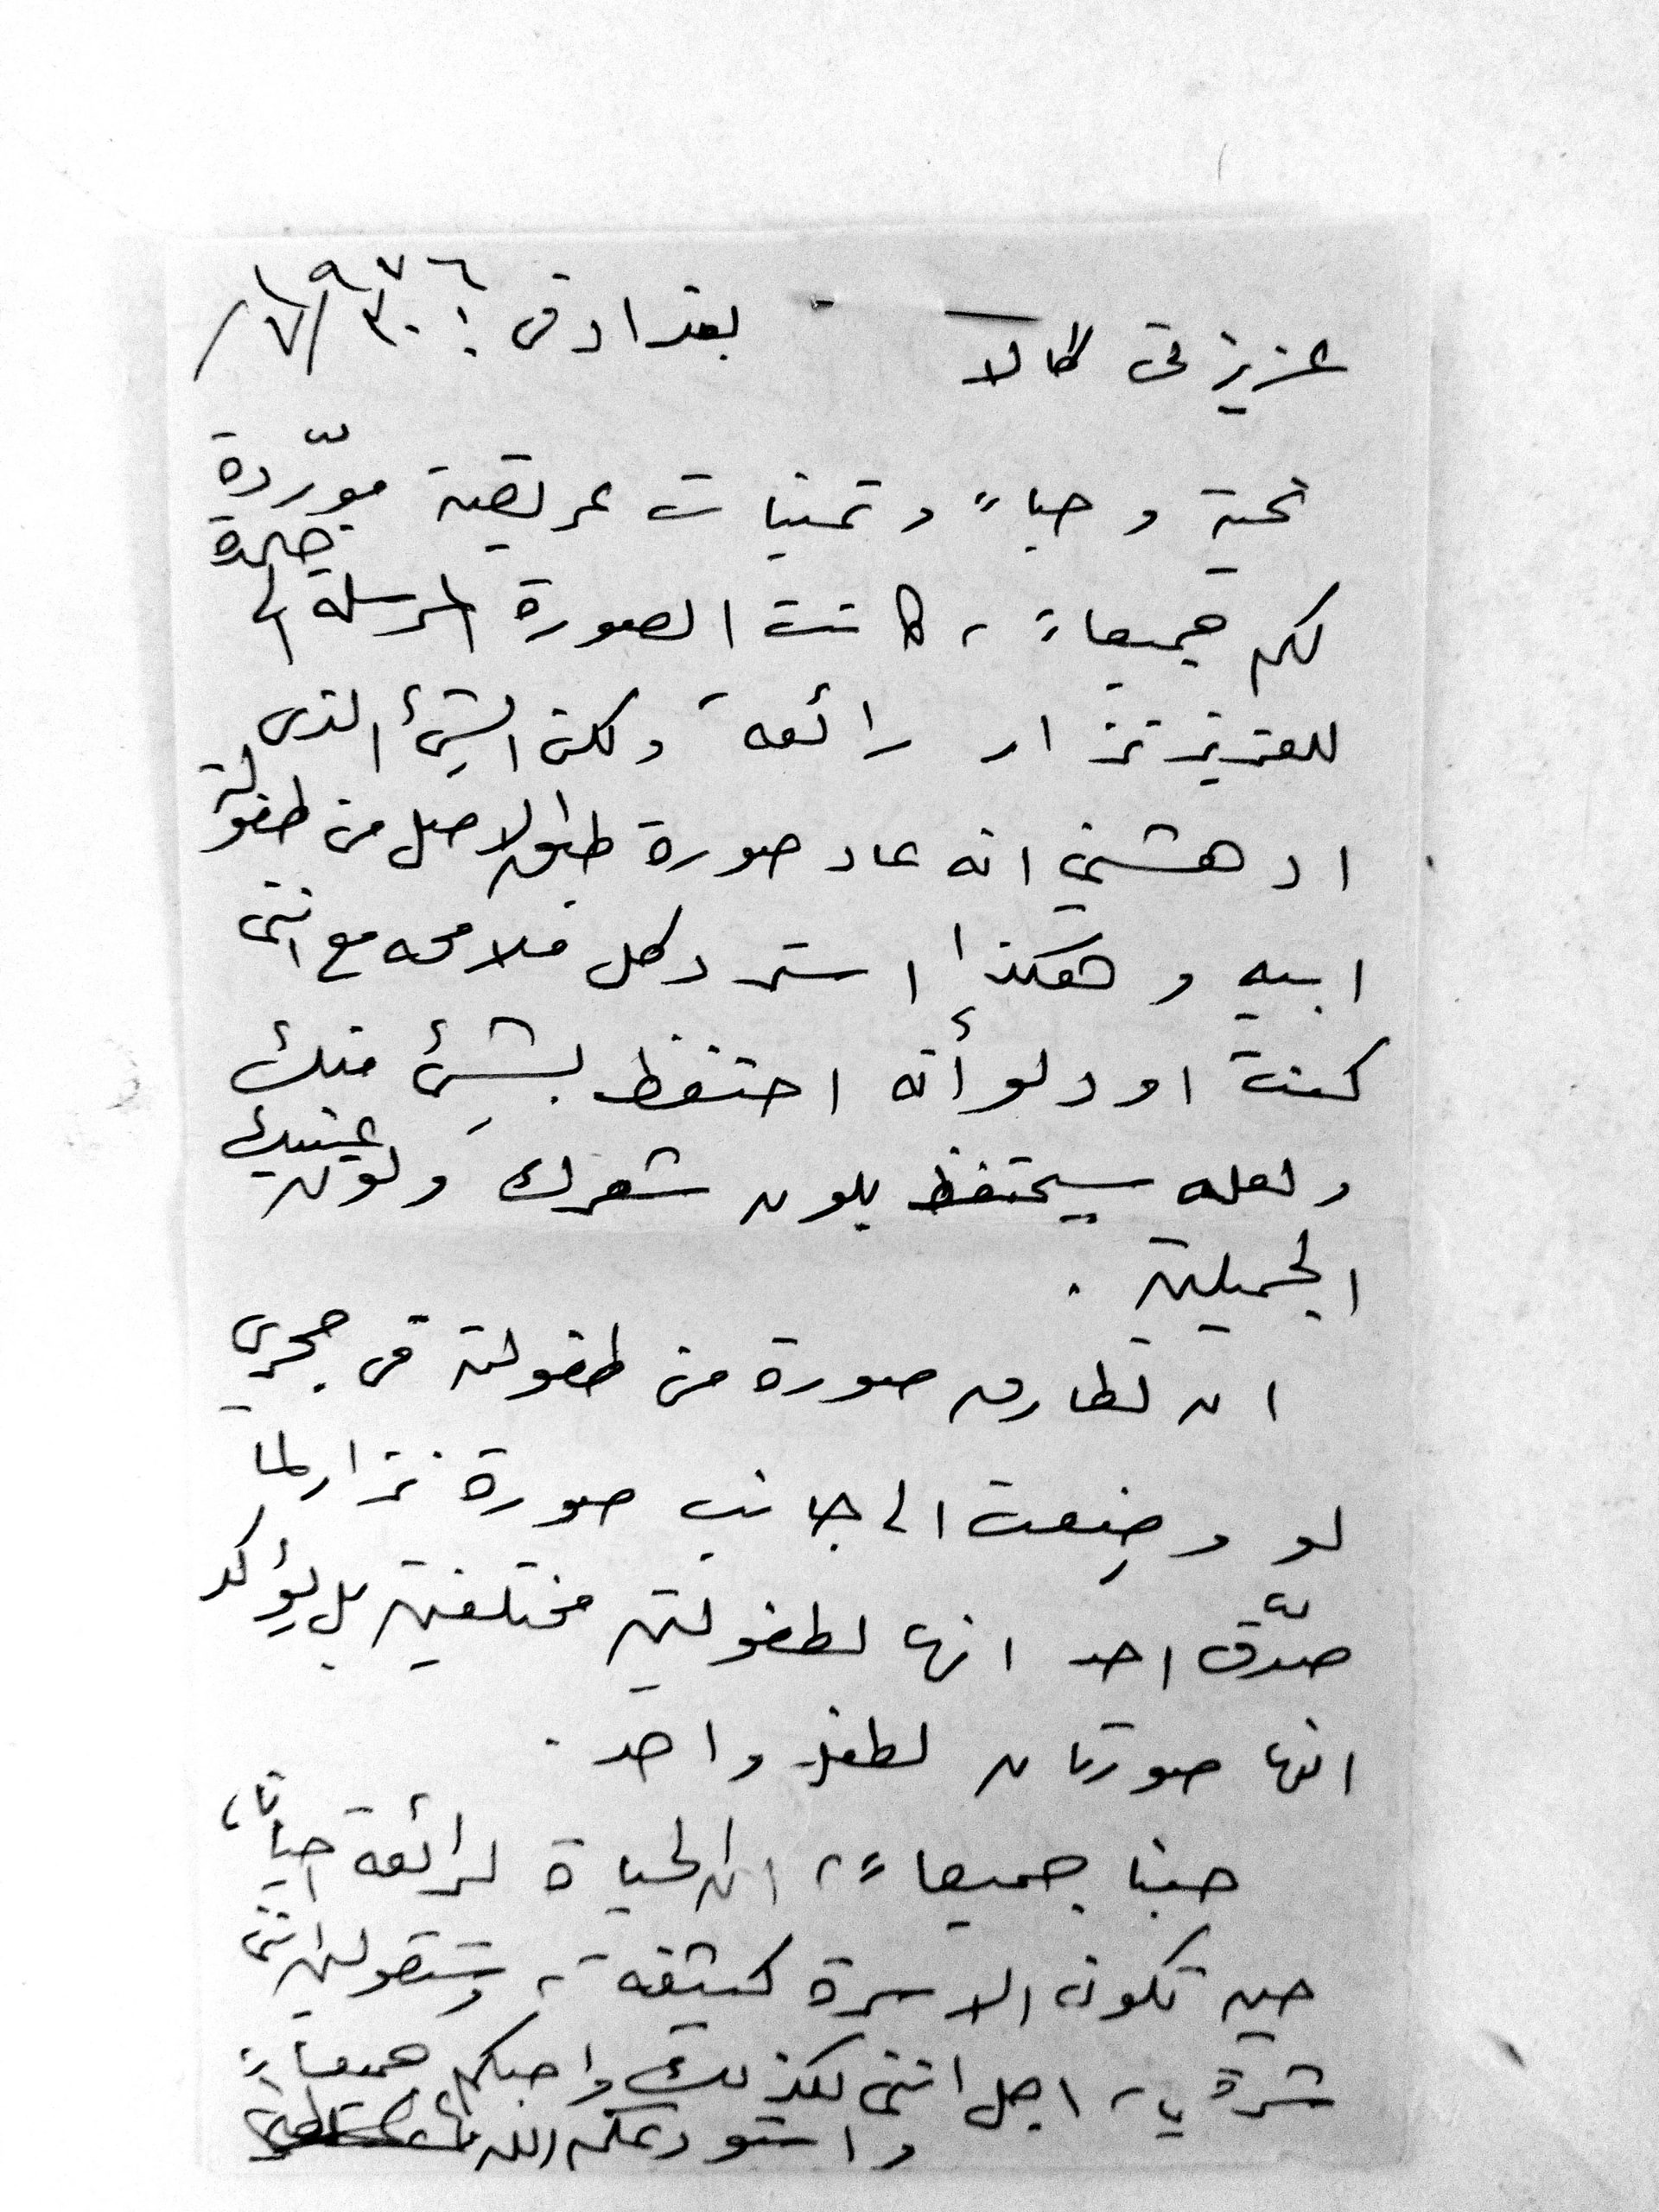 بغداد في : ٣٠/٧/١٩٧٦
عزيزتي هالا
تحية و حباً و تمنيات عريضة مورّدة
لكم جميعاً ، كانت الصورة المرسلة الى جدة
للعزيز نزار رائعة ولكن الشيء الذي
ادهشني انه عاد صورة طبق الاصل من طفولة
ابيه و هكذا استرد كل ملامحه مع انني
كنت اود لو أنه احتفظ بشيء منك
ولعله سيحتفظ بلون شعرك ولون عينيك
الجميلين .
ان لطارق صورة من طفولته في حجري
لو وضعت الى جانب صورة نزار لما
صدّق احد انها لطفولتين مختلفتين بل يؤكد
انها صورتان لطفل واحد .
حبنا جميعاً ، ان الحياة لرائعة احياناً ،
حين تكون الاسرة كثيفة ، وستقولين انني
شرقية ، اجل انني لكذلك واحبكم جميعاً
واستودعكم الله